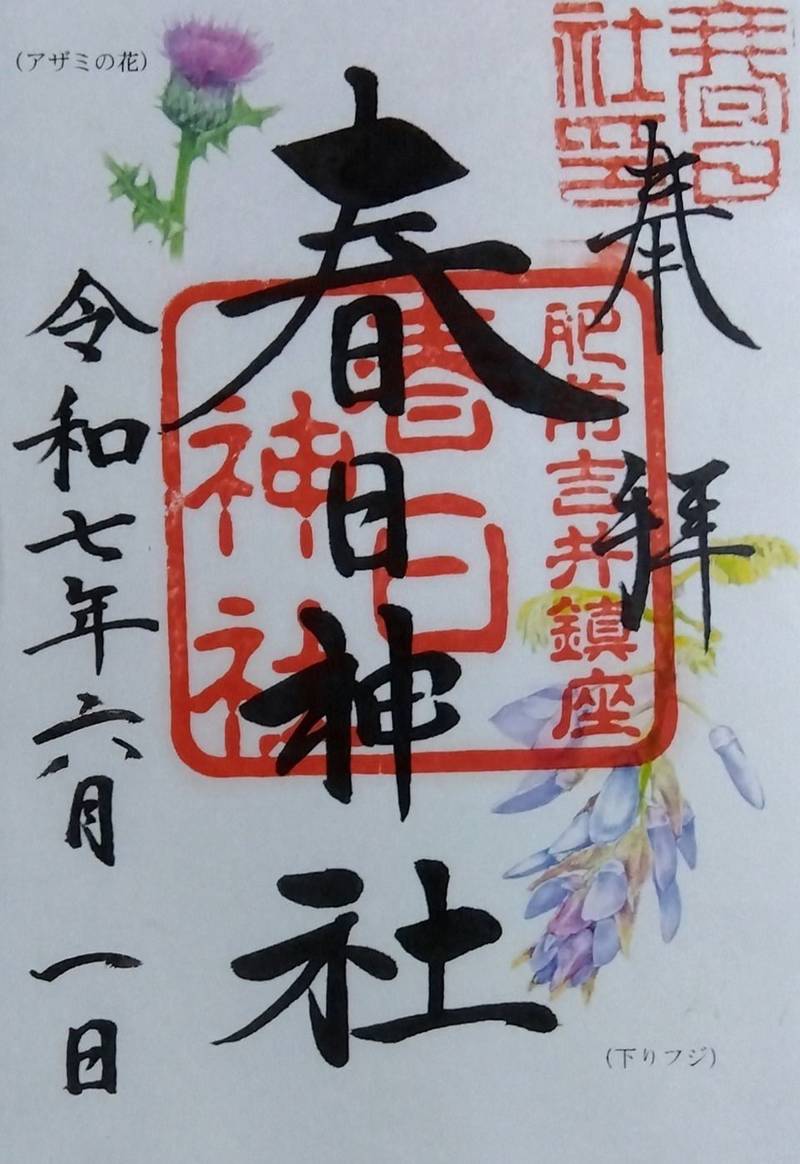 (アザミの花)
奉拝
春日神社
令和七年六月一日
肥前吉井鎮座
春日
神社
(下りフジ)